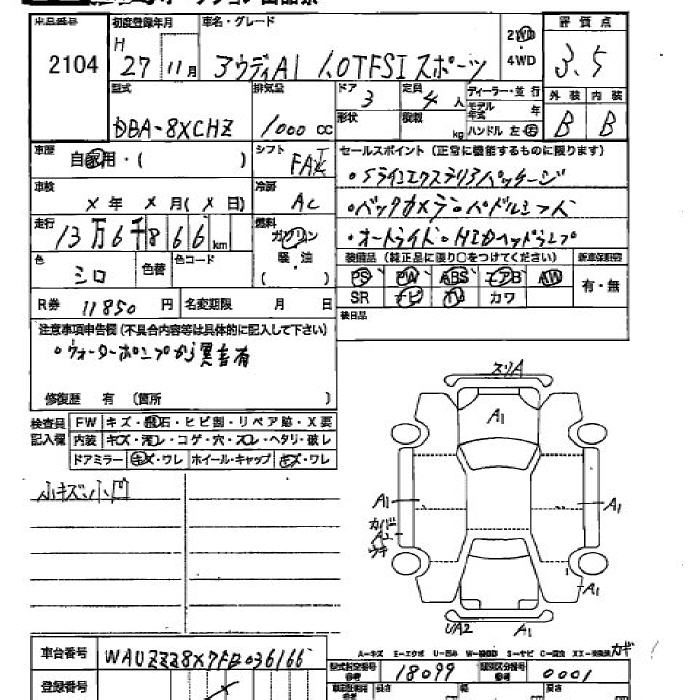 出品番号 初度登録年月 車名・グレード 評価点
2104 H 27 11月 アウディA1 1.0TFSIスポーツ 2WD ・ 4WD 3.5
型式 排気量 ドア 3 定員 4人 ディーラー・並行 外装 内装
モデル年式 年
DBA-8XCHZ 1000cc 形状 積載 kg ハンドル 左・右 B B
車歴 自家用・( ) シフト FAT セールスポイント(正常に機能するものに限ります)
・Sラインエクステリアパッケージ
車検 × 年 × 月( × 日) 冷房 AC ・バックカメラ・パドルシフト
走行 13万6千866km 燃料 ガソリン 軽油 ( ) ・オートライト・HIDヘッドランプ
色 シロ 色替 色コード
装備品(純正品に限り○をつけてください) 新車保証書
PS PW ABS エアB AW 有・無
SR ナビ カワ
R券 11850円 名変期限 月 日 後日品
注意事項申告欄(不具合内容等は具体的に記入して下さい)
・ウォーターポンプから異音有
修復歴 有 (箇所 )
検査員記入欄 FW キズ・飛石・ヒビ割・リペア跡・X要
内装 キズ・汚レ・コゲ・穴・スレ・ヘタリ・破レ
ドアミラー キズ・ワレ ホイール・キャップ キズ・ワレ
小キズ小凹
スリA
A1
A1 A1
カバー
A2
ウキ
A1
UA2 A1
A=キズ E=エクボ U=凹み W=補修跡 S=サビ C=腐食 XX=交換済 カギ
車台番号 WAUZZZ8X7FB036166 型式指定番号 参考 18099 類別区分番号 参考 0001
登録番号 長さ 幅 高さ